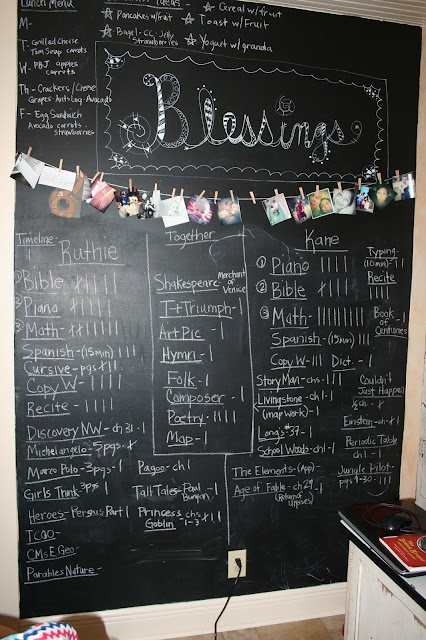 Lunch Menu
M-
T- Grilled Cheese
Tom Soup carrots
W- PBJ apples
carrots
Th- Crackers/Cheese
Grapes-Ants Log-Avocado
F- Egg Sandwich
Avocado carrots
strawberries
Ideas-
Cereal w/fruit
Pancakes w/fruit
Toast w/Fruit
Bagel-CC-Jelly
Strawberries
Yogurt w/granola
Blessings
Timeline-1
Ruthie
① Bible
② Piano
③ Math
Spanish-(15min) 1111
Cursive-pgs
Copy W-1111
Recite-1111
Discovery NW-ch 31-1
Michelangelo-5pgs-
Marco Polo-3pgs-1
Girls Think 3pgs 1
Heroes-Perseus Part 1
TCOO-
CMsE Geo-
Parables Nature-
Together
Shakespeare- Merchant
of
Venice
I+Triumph-1
Art Pic-1
Hymn-1
Folk-1
Composer-1
Poetry-1111
Map-1
Pagoo-ch1
Tall Tales-Paul
Bunyan
Princess
Goblin-
chs
1-3
Kane
① Piano 1111
② Bible
③ Math-
Spanish-(15min) 111
Copy W-111
Dict.-1
Story Man-chs-111
Livingstone-ch1-1
(map work)-1
Long's #37-1
School Woods-ch1-1
The Elements-(App)-1
Age of Fable-ch 29-1
(Return of
Ulysses)
Typing-
(10min)-11
Recite
1111
Book
of
Centuries
Couldn't
Just Happen
½ch-
Einstein-ch-
Periodic Table
ch1-1
Jungle Pilot-
pgs 9-30-111